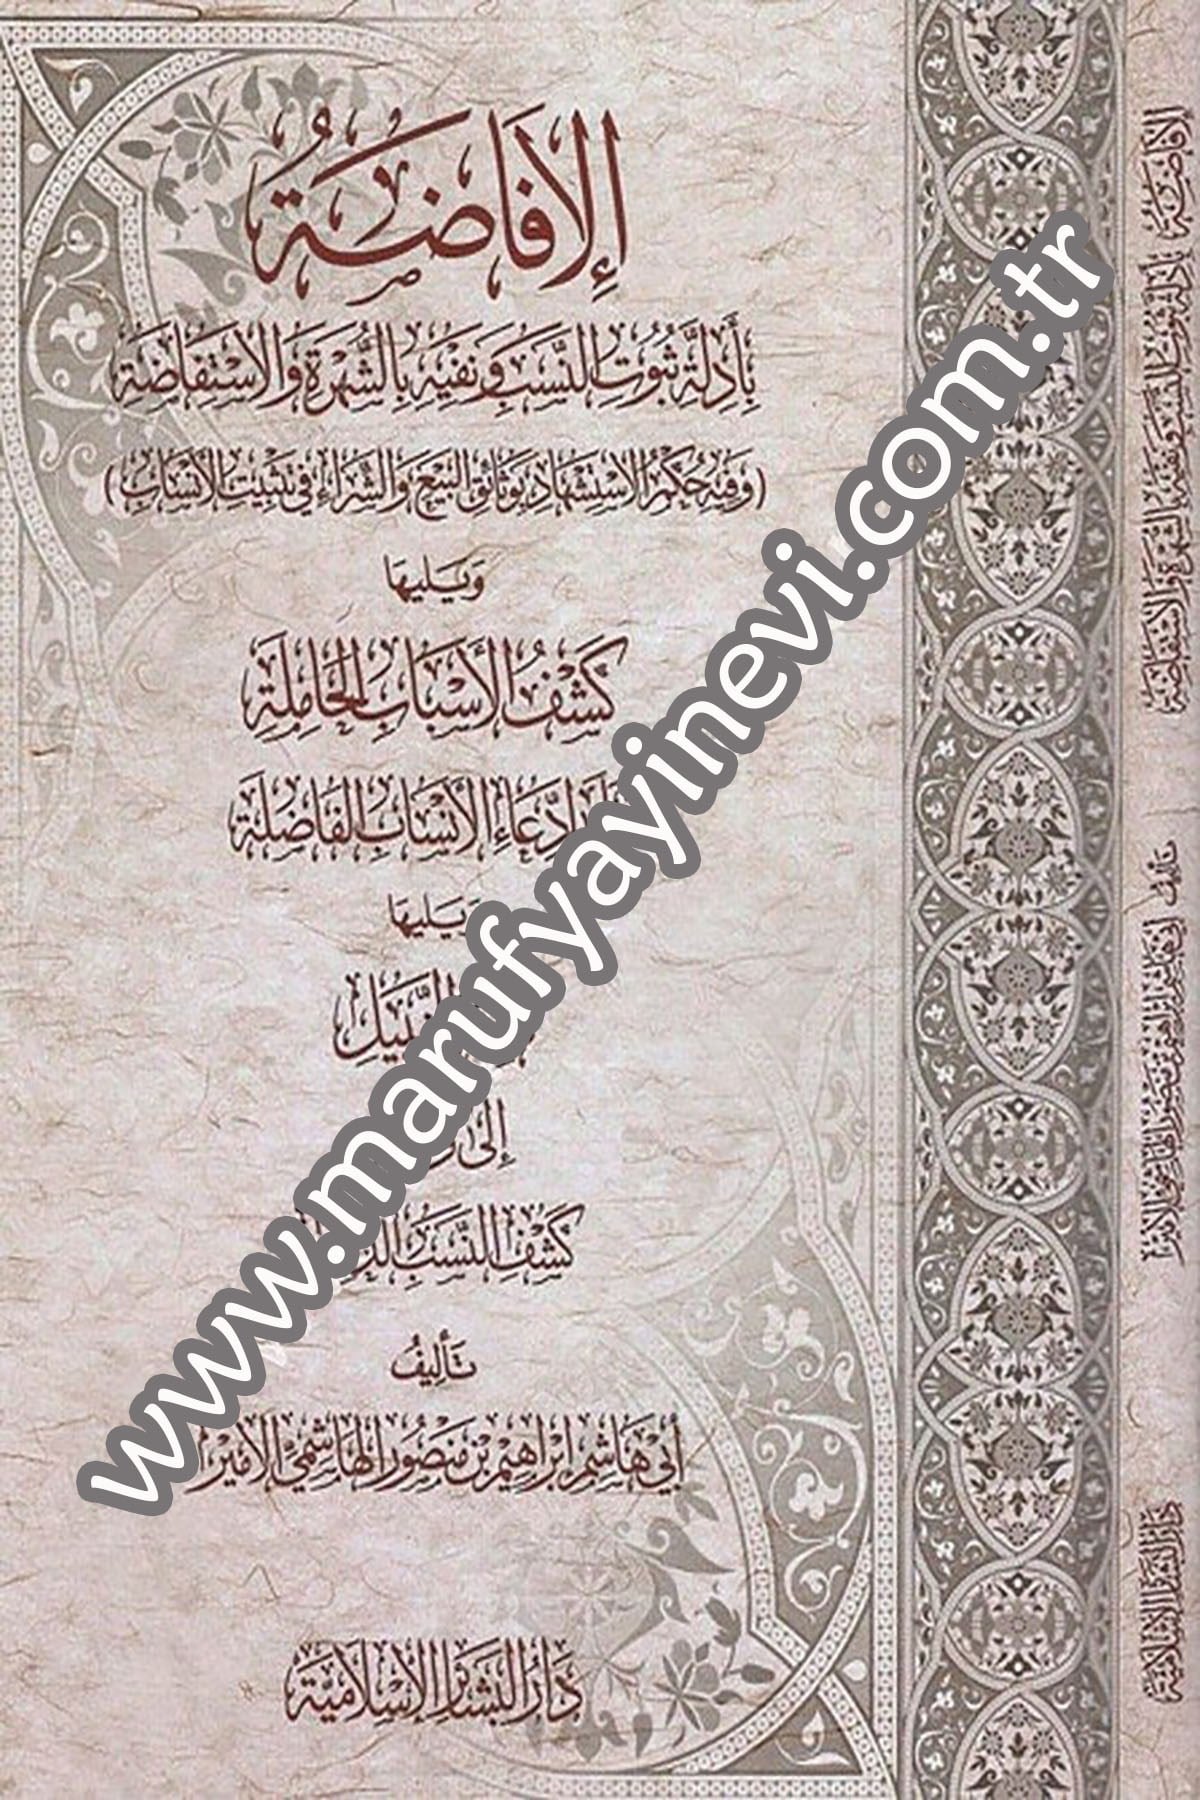 الإفَاضَةُ
بِأَدِلَّةِ ثُبُوتِ النَّسَبِ وَنَفْيِهِ بِالشُّهْرَةِ وَالاسْتِفَاضَةِ
(وَفِيهِ حُكْمُ الاسْتِشْهَادِ بِوَثَائِقِ البَيْعِ وَالشِّرَاءِ فِي تَثْبِيتِ الأَنْسَابِ)
وَيَليهَا
كَشْفُ الأَسْبَابِ الحَامِلَةِ
ادِّعَاءِ الأَنْسَابِ الفَاضِلَةِ
وَيَليهَا
إلى
كَشْفِ النَّسَبِ
تَأليفُ
أَبِي هَاشِمٍ إبْرَاهِيْم بْن مَنْصُورٍ الهَاشِمِيِّ الأَمِيْر
دَارُ البَشَائِرِ الإِسْلَامِيَّة
الإفاضة بأدلة ثبوت النسب ونفيه بالشهرة والاستفاضة
تأليف
أبي هاشم إبراهيم بن منصور الهاشمي الأمير
دار البشائر الإسلامية
www.marufyayinevi.com.tr